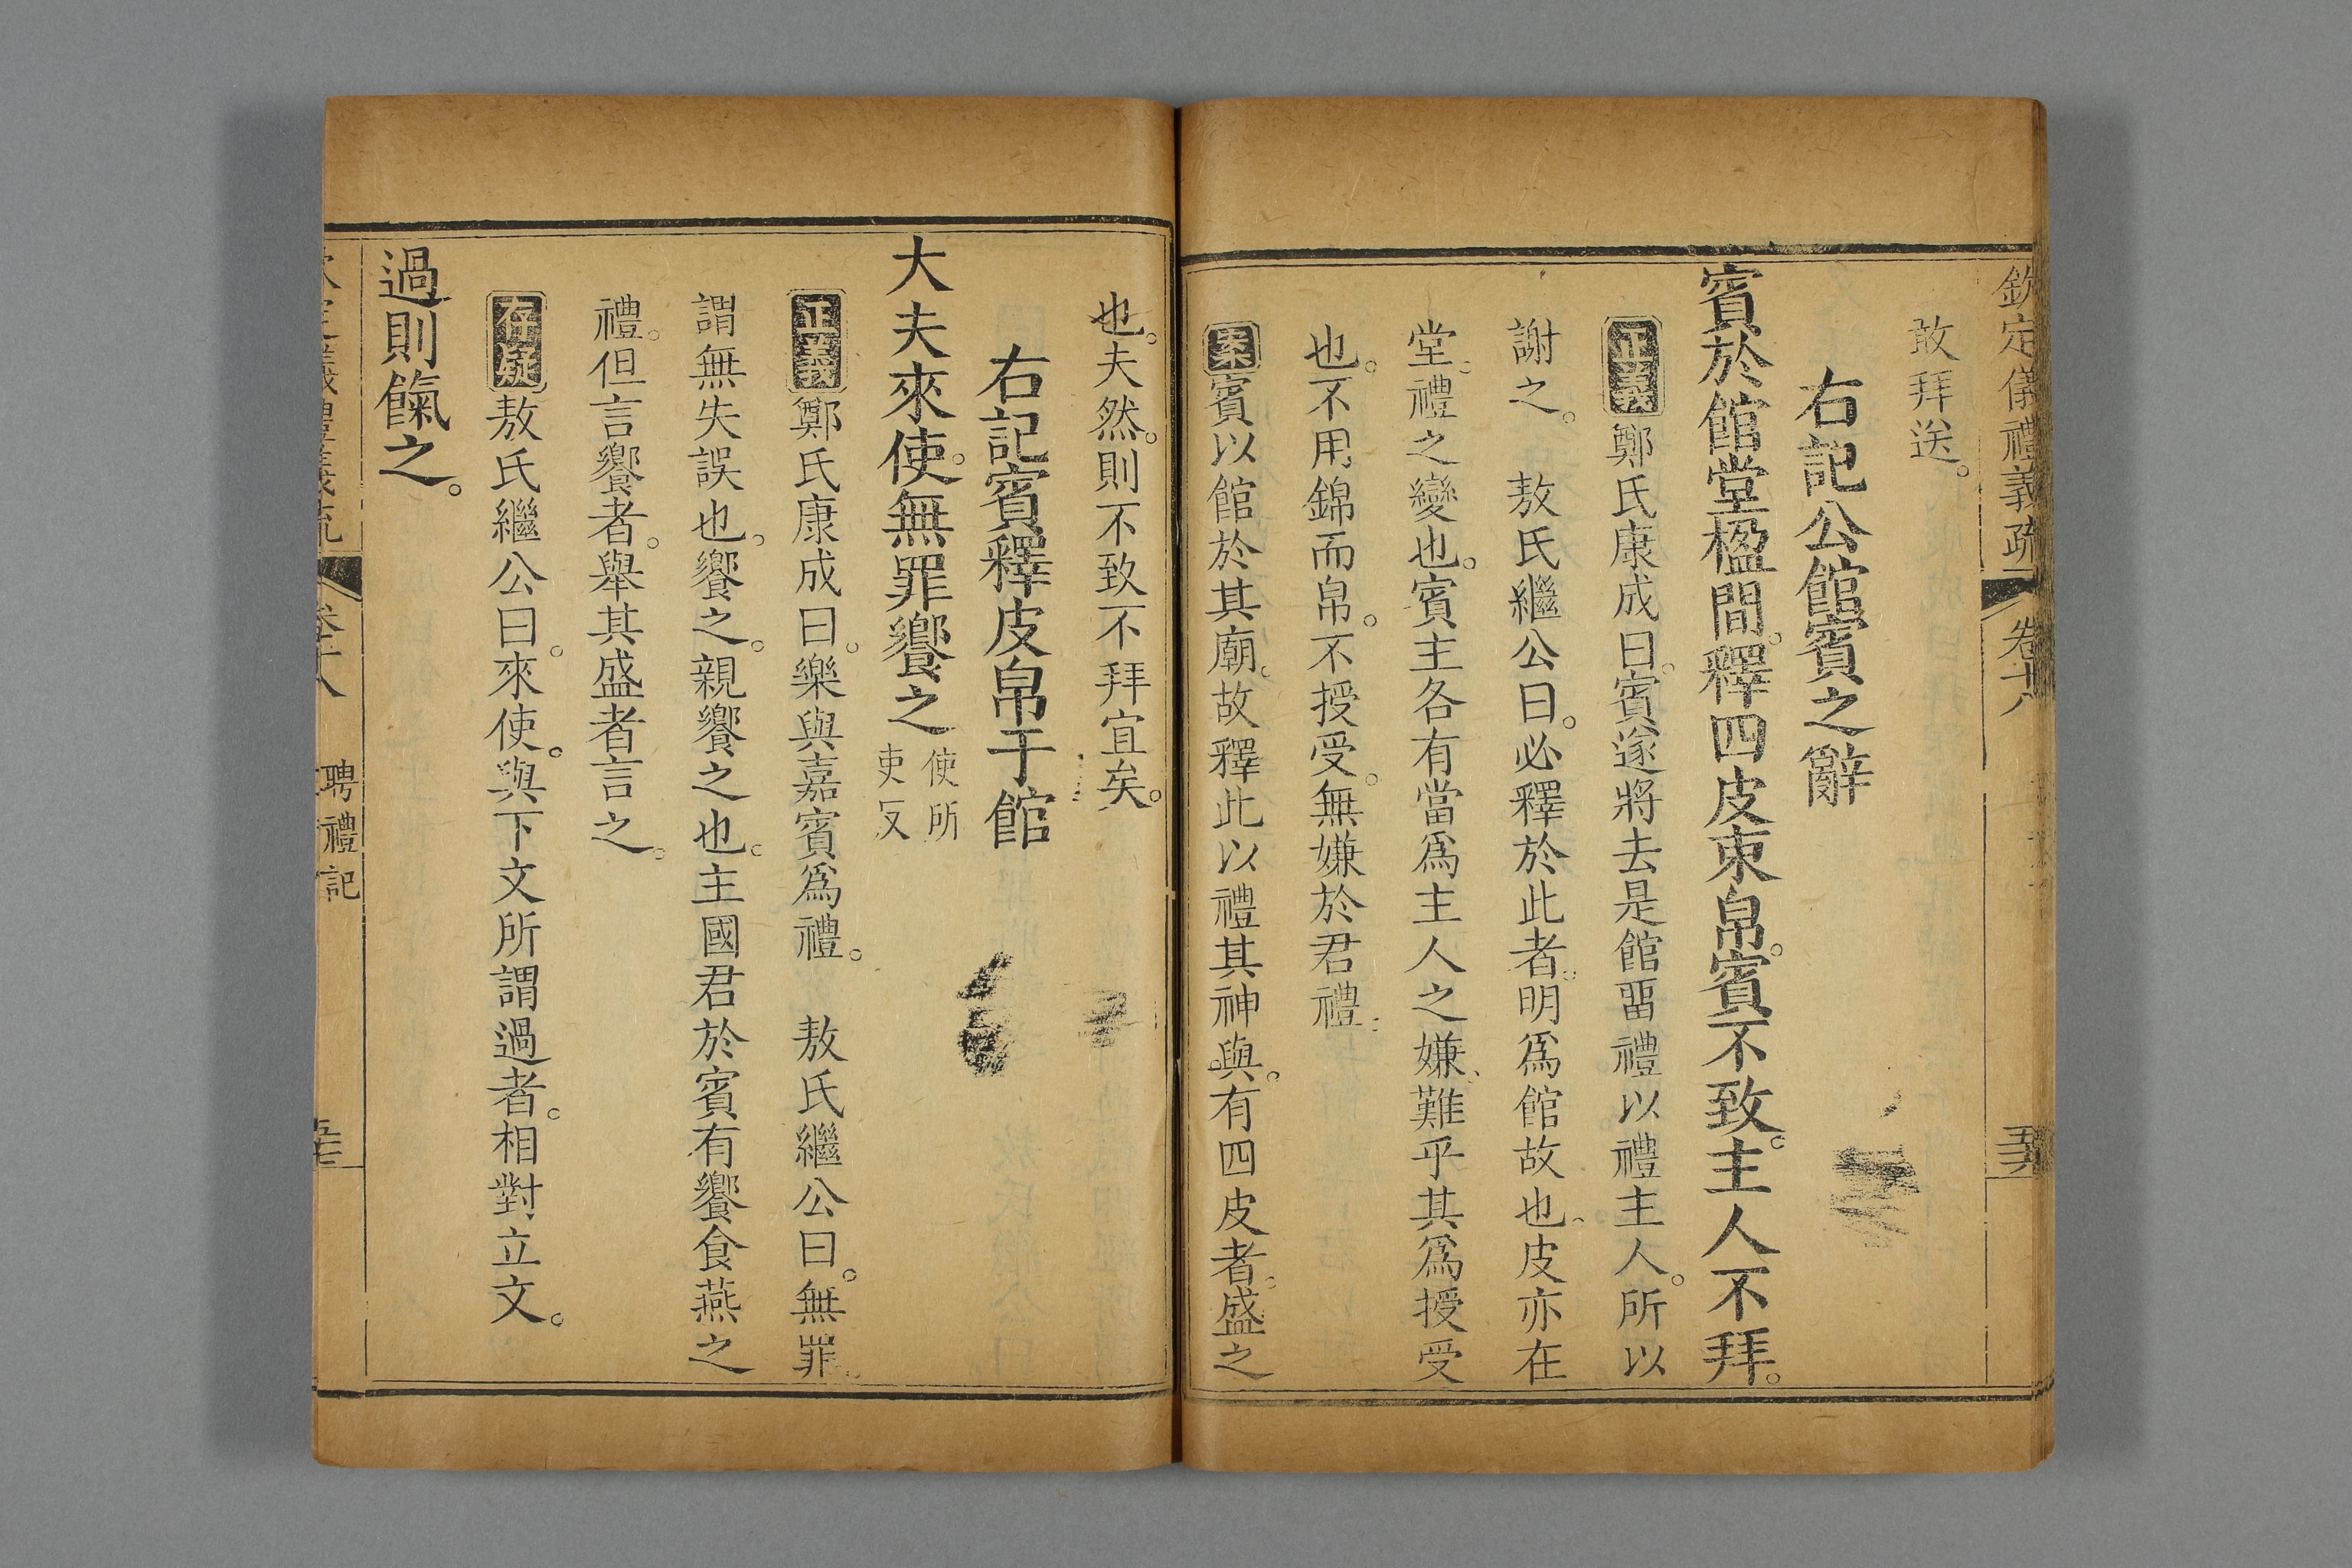 欽定儀禮義疏 卷十八
敢拜送。
右記公館賓之辭
賓於館堂楹間。釋四皮束帛。賓不致。主人不拜。
正義鄭氏康成曰。賓遂將去是館留禮以禮主人。所以
謝之。 敖氏繼公曰。必釋於此者。明爲館故也。皮亦在
堂。禮之變也。賓主各有當爲主人之嫌。難乎其爲授受
也。不用錦而帛。不授受。無嫌於君禮。
案賓以館於其廟。故釋此以禮其神與。有四皮者。盛之
也。夫然。則不致不拜宜矣。
右記賓釋皮帛于館
大夫來使。無罪饗之 使所
吏反
正義鄭氏康成曰。樂與嘉賓爲禮。 敖氏繼公曰。無罪。
謂無失誤也。饗之。親饗之也。主國君於賓有饗食燕之
禮。但言饗者。舉其盛者言之。
存疑敖氏繼公曰。來使。與下文所謂過者。相對立文。
過則餼之。
聘禮記